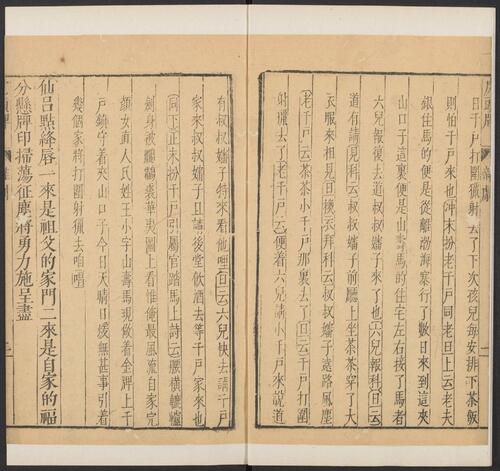 日千戶打圍獵射去了下次孩兒每安排下茶飯
則怕千戶來也〔沖末扮老千戶同老旦上云〕老夫
銀住馬的便是從離渤海寨行了數日來到這夾
山口子這裏便是山壽馬的住宅左右接了馬者
六兒報復去道叔叔嬸子來了也〔六兒報科〕〔旦云〕
道有請〔見科云〕叔叔嬸子前廳上坐茶茶穿了大
衣服來相見〔旦換衣拜科云〕叔叔嬸子遠路風塵
〔老千戶云〕茶茶小千戶那裏去了〔旦云〕千戶打圍
射獵去了〔老千戶云〕便着六兒請小千戶來說道
有叔叔嬸子特來看他哩〔旦云〕六兒快去請千戶
家來叔叔嬸子且請後堂飲酒去等千戶家來也
〔同下〕〔正末扮千戶引屬官踏馬上詩云〕腰橫轆轤
劍身被鷫鸘裘華夷圖上看惟俺最風流自家完
顏女直人氏姓王小字山壽馬現做着金牌上千
戶鎮守着夾山口子今日天晴日煖無甚事引着
幾個家將打圍射獵去咱〔唱〕
仙呂點絳唇一來是祖父的家門二來是自家的福
分懸牌印掃蕩征塵將勇力施呈盡